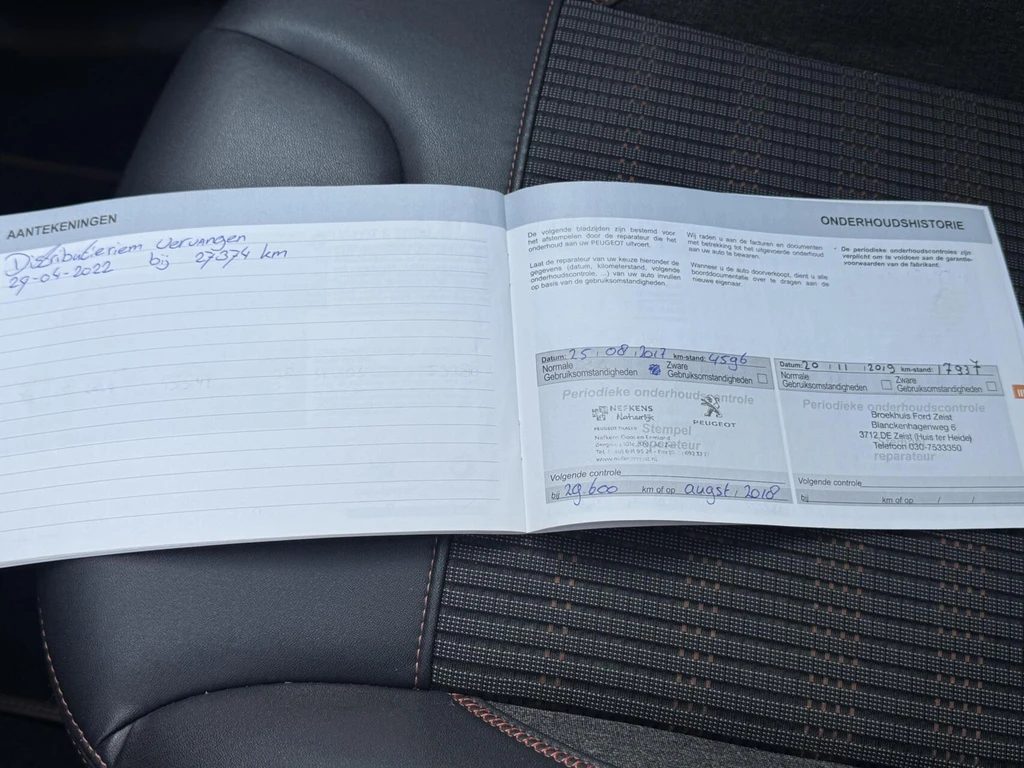 AANTEKENINGEN
Distributieriem Vervangen
29-04-2022 bij 27374 km
ONDERHOUDSHISTORIE
De volgende bladzijden zijn bestemd voor
het afstempelen door de reparateur die het
onderhoud aan uw PEUGEOT uitvoert.
Laat de reparateur van uw keuze hieronder de
gegevens (datum, kilometerstand, volgende
onderhoudscontrole, ...) van uw auto invullen
op basis van de gebruiksomstandigheden.
Wij raden u aan de facturen en documenten
met betrekking tot het uitgevoerde onderhoud
aan uw auto te bewaren.
Wanneer u de auto doorverkoopt, dient u alle
boorddocumentatie over te dragen aan de
nieuwe eigenaar.
- De periodieke onderhoudscontroles zijn
verplicht om te voldoen aan de garantie-
voorwaarden van de fabrikant.
Datum: 25 / 08 / 2017 km-stand: 4596
Normale
Gebruiksomstandigheden
Zware
Gebruiksomstandigheden
Periodieke onderhoudscontrole
NEFKENS
Natuurlijk
PEUGEOT
PEUGEOT DEALER
Stempel
reparateur
Volgende controle
bij 29.600 km of op augst / 2018
Datum: 20 / 11 / 2019 km-stand: 17937
Normale
Gebruiksomstandigheden
Zware
Gebruiksomstandigheden
Periodieke onderhoudscontrole
Broekhuis Ford Zeist
Blanckenhagenweg 6
3712 DE Zeist (Huis ter Heide)
Telefoon 030-7533350
reparateur
Volgende controle
bij km of op / /